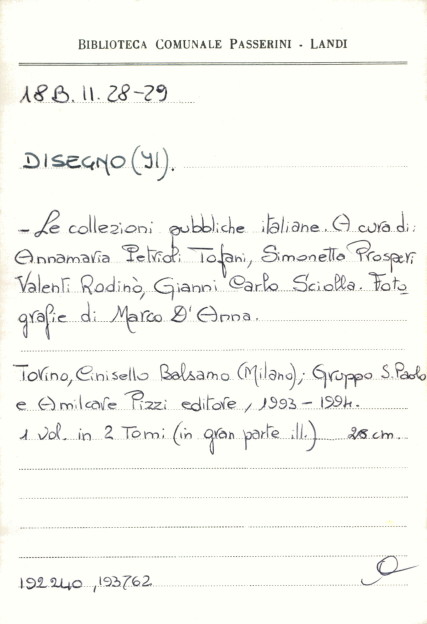 BIBLIOTECA COMUNALE PASSERINI - LANDI
18B. II. 28-29
DISEGNO (Il).
- Le collezioni pubbliche italiane. A cura di:
Annamaria Petrioli Tofani, Simonetta Prosperi
Valenti Rodinò, Gianni Carlo Sciolla. Foto_
grafie di Marco D'Anna.
Torino, Cinisello Balsamo (Milano), Gruppo S. Paolo
e Amilcare Pizzi editore, 1993 - 1994.
1 vol. in 2 Tomi (in gran parte ill.) 28 cm.
192240, 193762